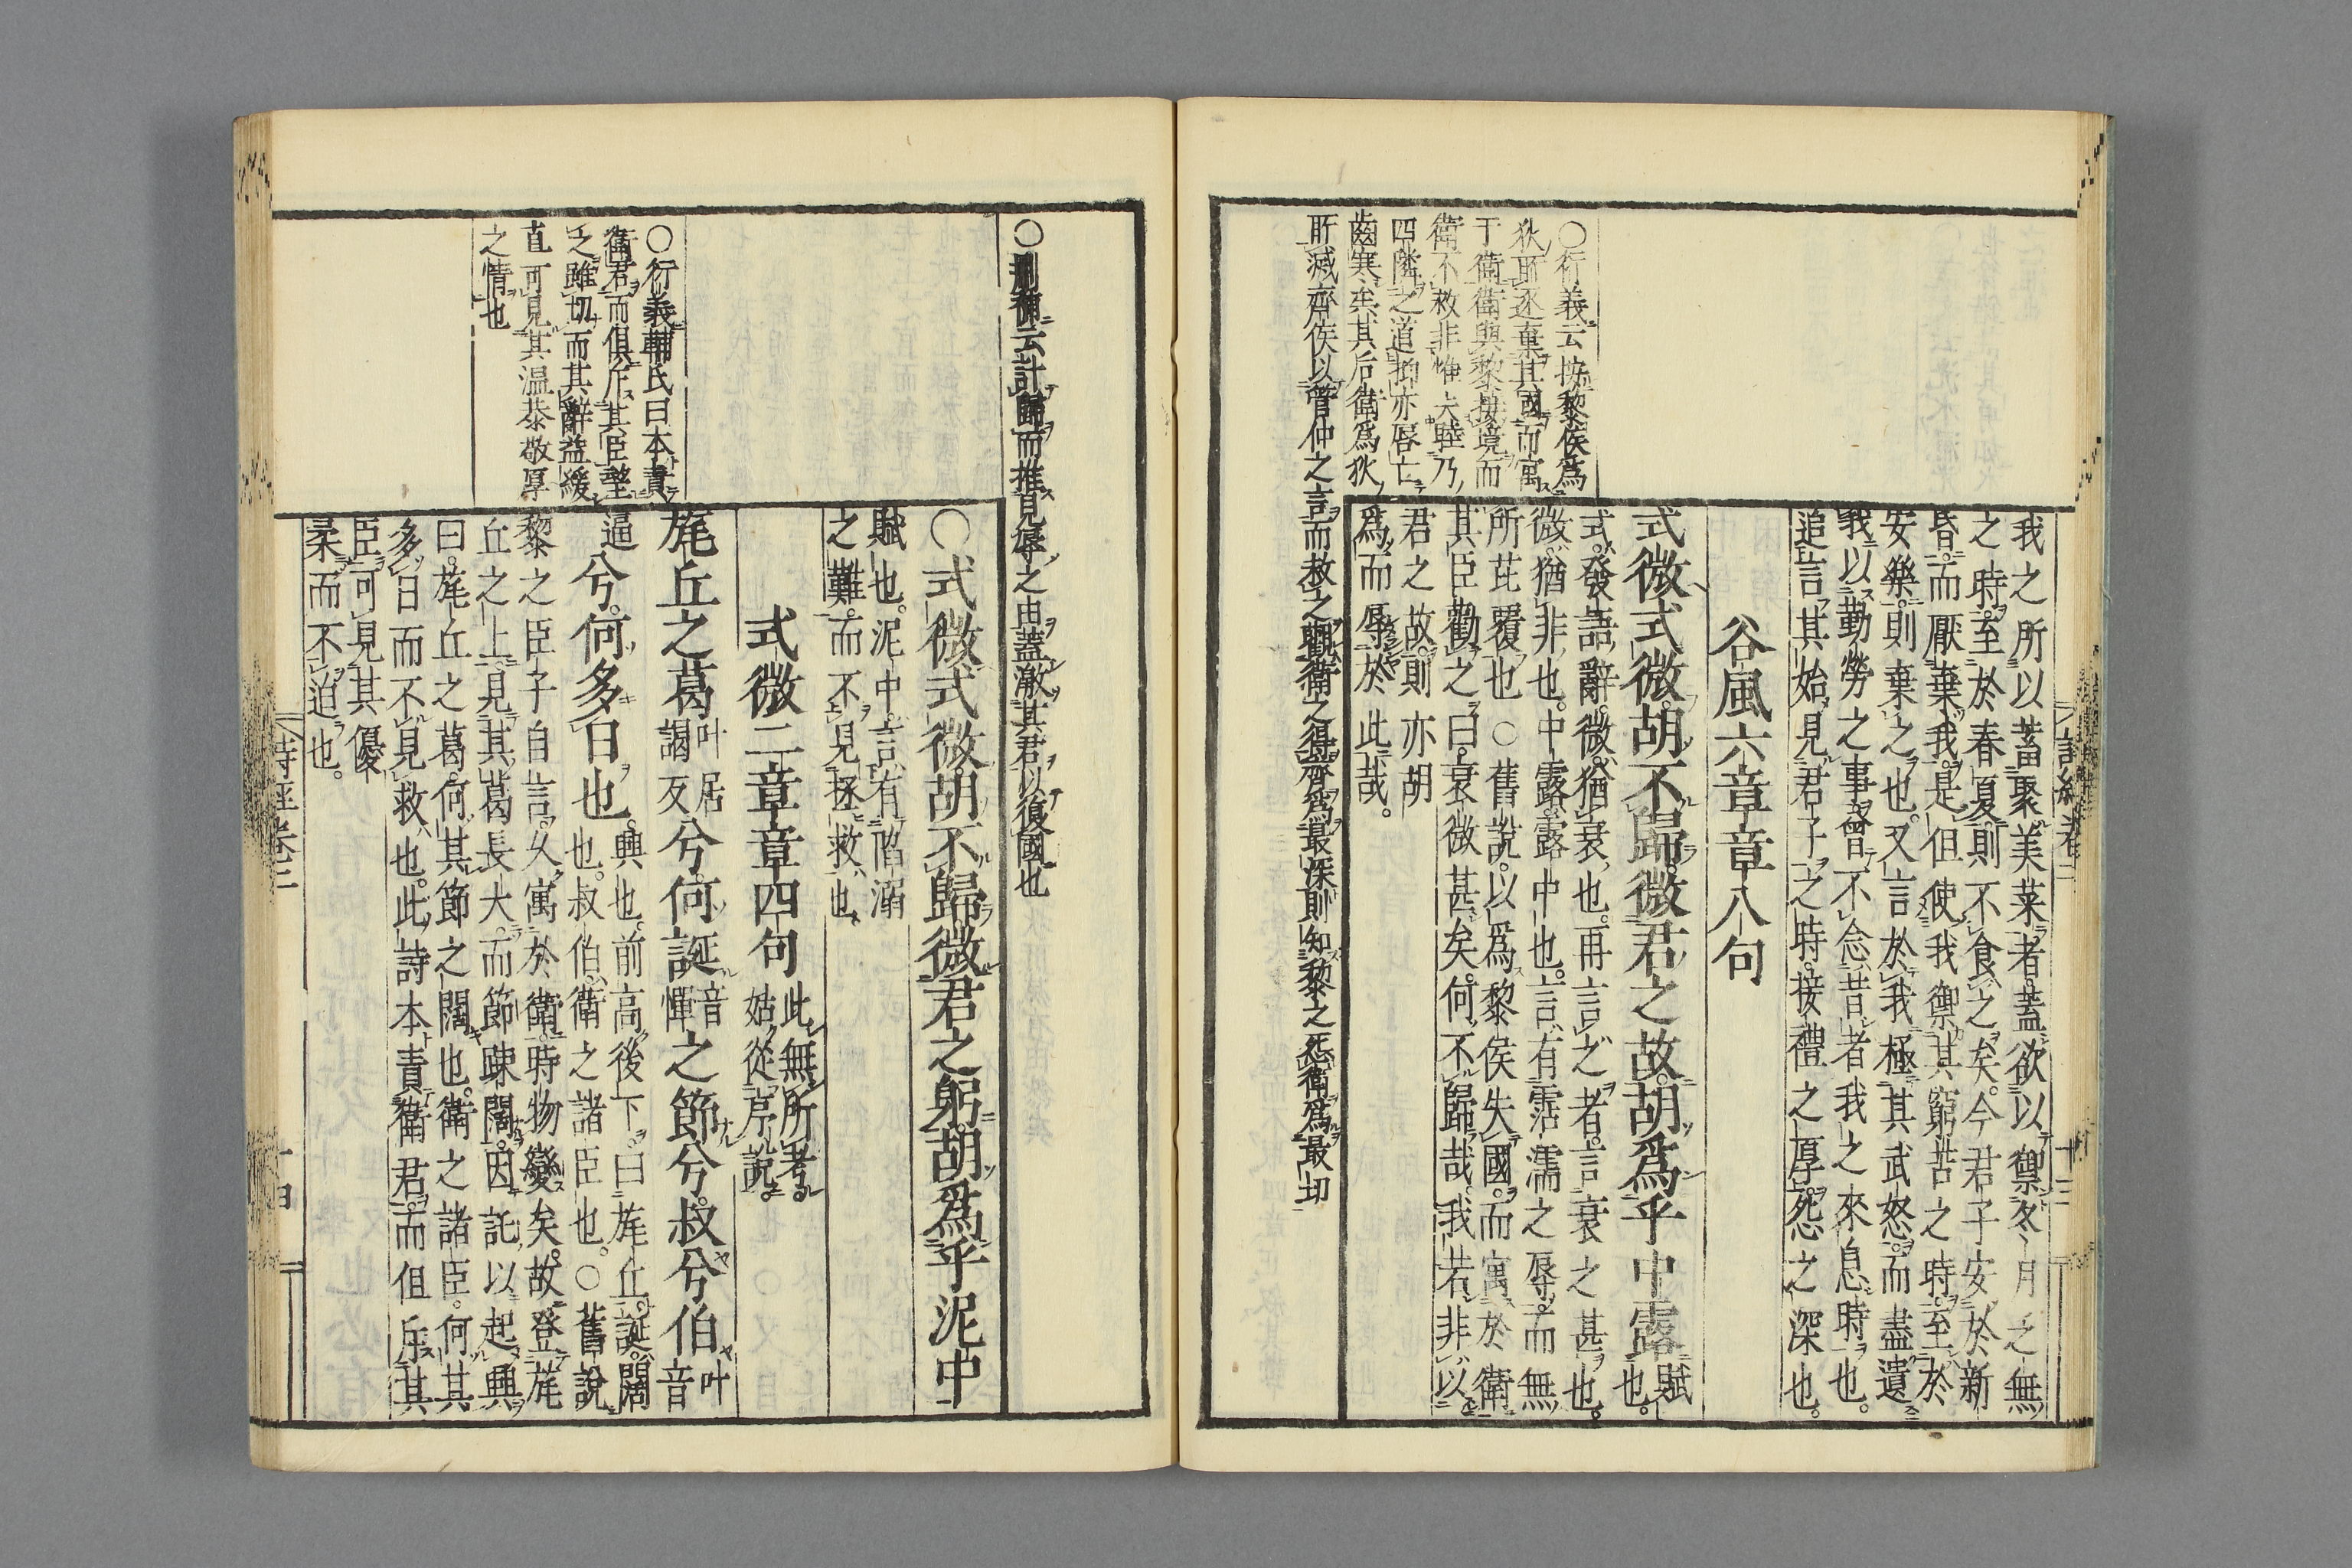 詩經卷二
十三
○衍義云按黎侯爲
狄所逐棄其國而寓
于衛衛與黎接境而
衛不救非惟失睦乃
四隣之道抑亦唇亡
齒寒矣其后衛爲狄
所滅齊侯以管仲之言而救之觀衛之得齊爲最深則知黎之怨衛爲最切
我之所以蓄聚美菜者蓋欲以禦冬月之無
之時至於春夏則不食之矣今君子安於新
昏而厭棄我是但使我禦其窮苦之時至於
安樂則棄之也又言於我極其武怒而盡遺
我以勤勞之事曾不念昔者我之來息時也
追言其始見君子之時接禮之厚怨之深也
谷風六章章八句
式微式微胡不歸微君之故胡爲乎中露賦
也
式發語辭微猶衰也再言之者言衰之甚也
微猶非也中露露中也言有霑濡之辱而無
所芘覆也○舊說以爲黎侯失國而寓於衛
其臣勸之曰衰微甚矣何不歸哉我若非以
君之故則亦胡
爲而辱於此哉
○刪補云計歸而推見辱之由蓋激其君以復國也
○式微式微胡不歸微君之躬胡爲乎泥中
賦也泥中言有陷溺
之難而不見拯救也
式微二章章四句
此無所考
姑從序說
○衍義輔氏曰本責
衛君而俱斥其臣望
之雖切而其辭益緩
直可見其温恭敬厚
之情也
旄丘之葛叶居
謁反兮何誕音
憚之節兮叔兮伯叶
音
逼兮何多日也興也前高後下曰旄丘誕闊
也叔伯衛之諸臣也○舊說
黎之臣子自言久寓於衛時物變矣故登旄
丘之上見其葛長大而節疎闊因託以起興
曰旄丘之葛何其節之闊也衛之諸臣何其
多日而不見救也此詩本責衛君而但斥其
臣可見其優
柔而不迫也
詩經卷二
十四